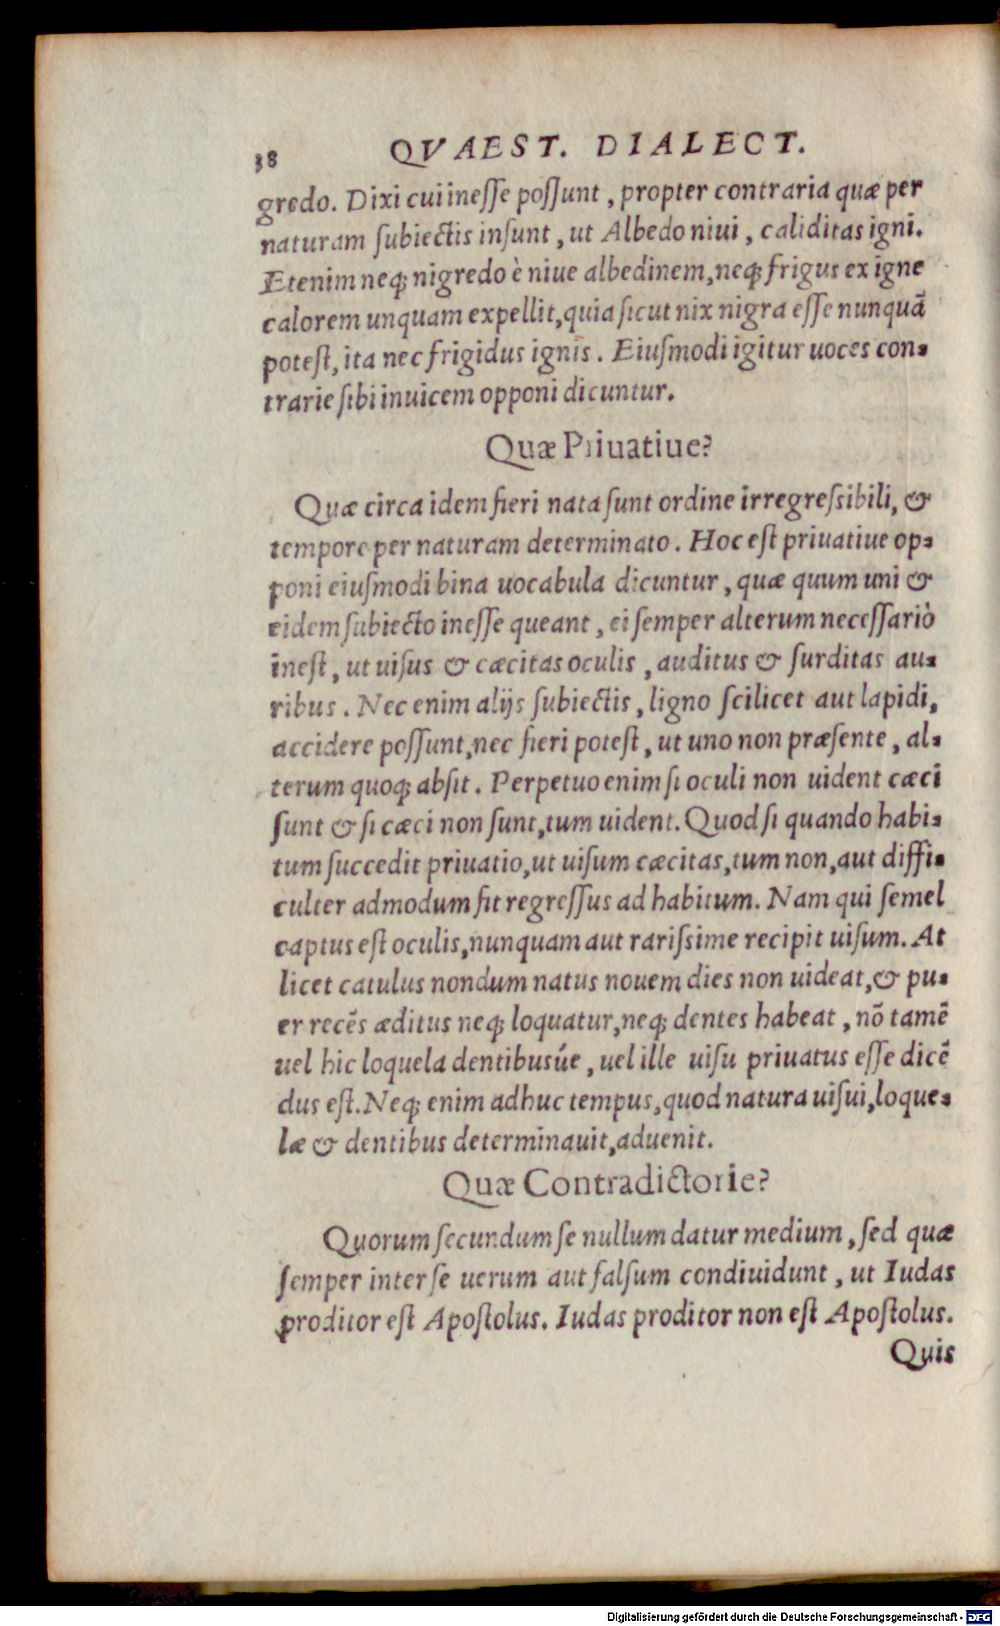 38 QVAEST. DIALECT.
gredo. Dixi cui inesse possunt, propter contraria quæ per
naturam subiectis insunt, ut Albedo niui, caliditas igni.
Etenim neq; nigredo è niue albedinem, neq; frigus ex igne
calorem unquam expellit, quia sicut nix nigra esse nunquā
potest, ita nec frigidus ignis. Eiusmodi igitur uoces con-
trarie sibi inuicem opponi dicuntur.
Quæ Priuatiue?
Quæ circa idem fieri nata sunt ordine irregressibili, &
tempore per naturam determinato. Hoc est priuatiue op-
poni eiusmodi bina uocabula dicuntur, quæ quum uni &
eidem subiecto inesse queant, ei semper alterum necessariò
inest, ut uisus & cæcitas oculis, auditus & surditas au-
ribus. Nec enim alijs subiectis, ligno scilicet aut lapidi,
accidere possunt, nec fieri potest, ut uno non præsente, al-
terum quoq; absit. Perpetuo enim si oculi non uident cæci
sunt & si cæci non sunt, tum uident. Quod si quando habi-
tum succedit priuatio, ut uisum cæcitas, tum non, aut diffi-
culter admodum fit regressus ad habitum. Nam qui semel
captus est oculis, nunquam aut rarissime recipit uisum. At
licet catulus nondum natus nouem dies non uideat, & pu-
er recēs æditus neq; loquatur, neq; dentes habeat, nō tamē
uel hic loquela dentibusúe, uel ille uisu priuatus esse dicē
dus est. Neq; enim adhuc tempus, quod natura uisui, loque-
læ & dentibus determinauit, aduenit.
Quæ Contradictorie?
Quorum secundum se nullum datur medium, sed quæ
semper inter se uerum aut falsum condiuidunt, ut Iudas
proditor est Apostolus. Iudas proditor non est Apostolus.
Quis
Digitalisierung gefördert durch die Deutsche Forschungsgemeinschaft - DFG